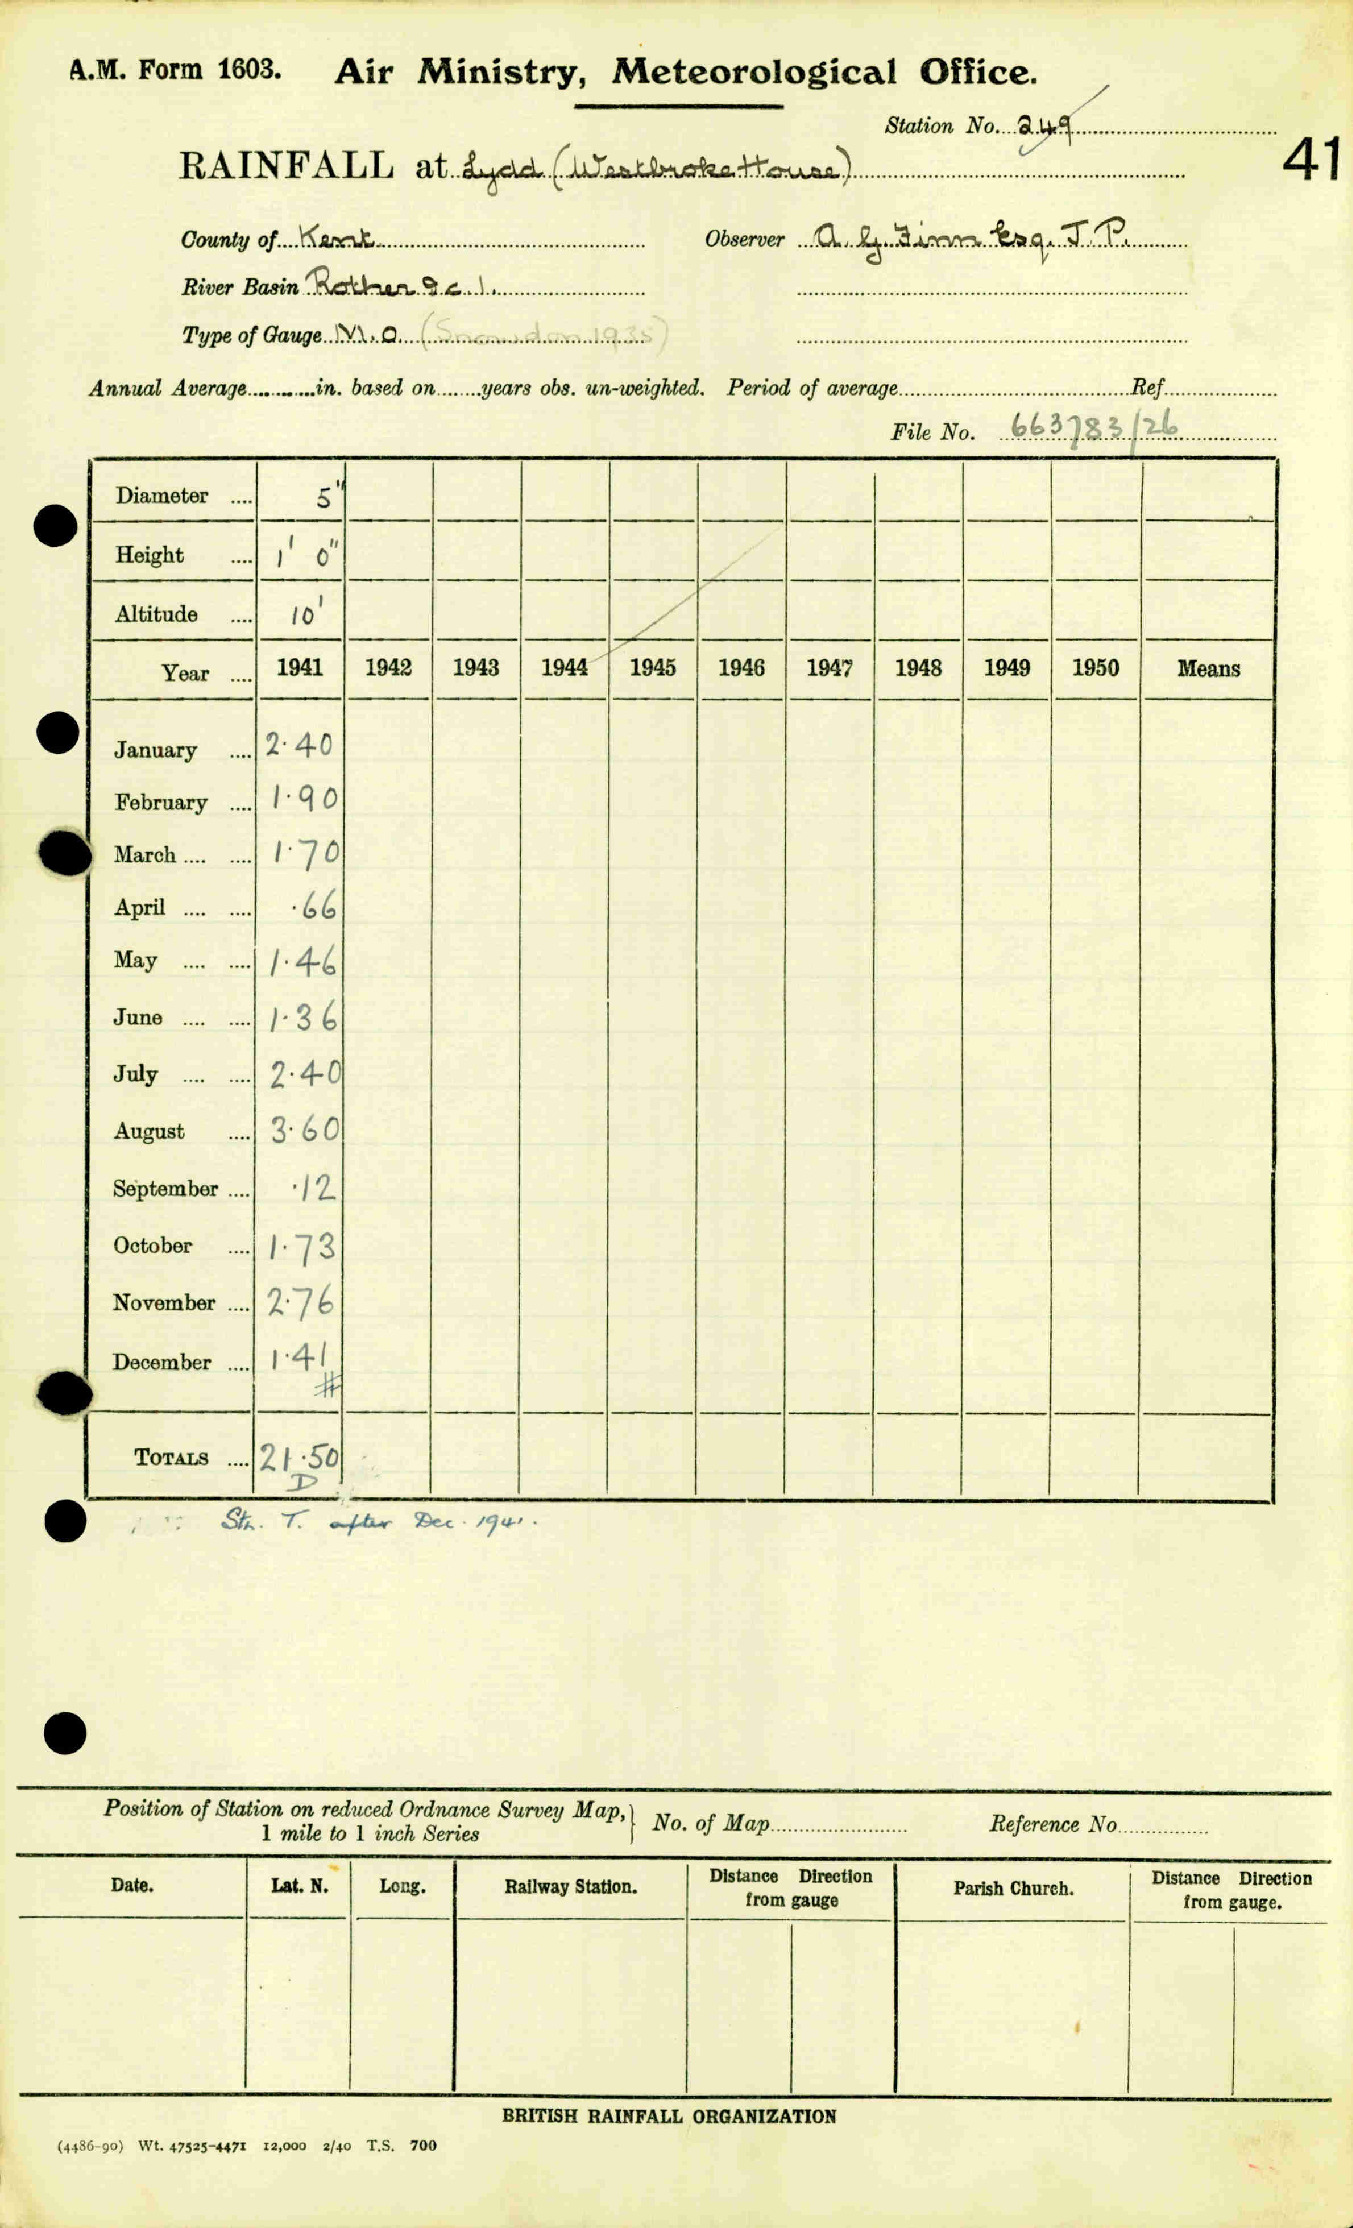 A.M. Form 1603. Air Ministry, Meteorological Office.
Station No. 249
41
RAINFALL at Lydd (Westbroke House)
County of Kent Observer A. G. Finn Esq. J. P.
River Basin Rother & c. 1.
Type of Gauge M.O. (Snowdon 1935)
Annual Average in. based on years obs. un-weighted. Period of average Ref.
File No. 663783/26
Diameter 5"
Height 1' 0"
Altitude 10'
Year 1941 1942 1943 1944 1945 1946 1947 1948 1949 1950 Means
January 2.40
February 1.90
March 1.70
April .66
May 1.46
June 1.36
July 2.40
August 3.60
September .12
October 1.73
November 2.76
December 1.41
#
TOTALS 21.50
D
Stn. T. after Dec. 1941.
Position of Station on reduced Ordnance Survey Map, } No. of Map Reference No.
1 mile to 1 inch Series
Date. Lat. N. Long. Railway Station. Distance Direction from gauge Parish Church. Distance Direction from gauge.
BRITISH RAINFALL ORGANIZATION
(4486-90) Wt. 47525-4471 12,000 2/40 T.S. 700